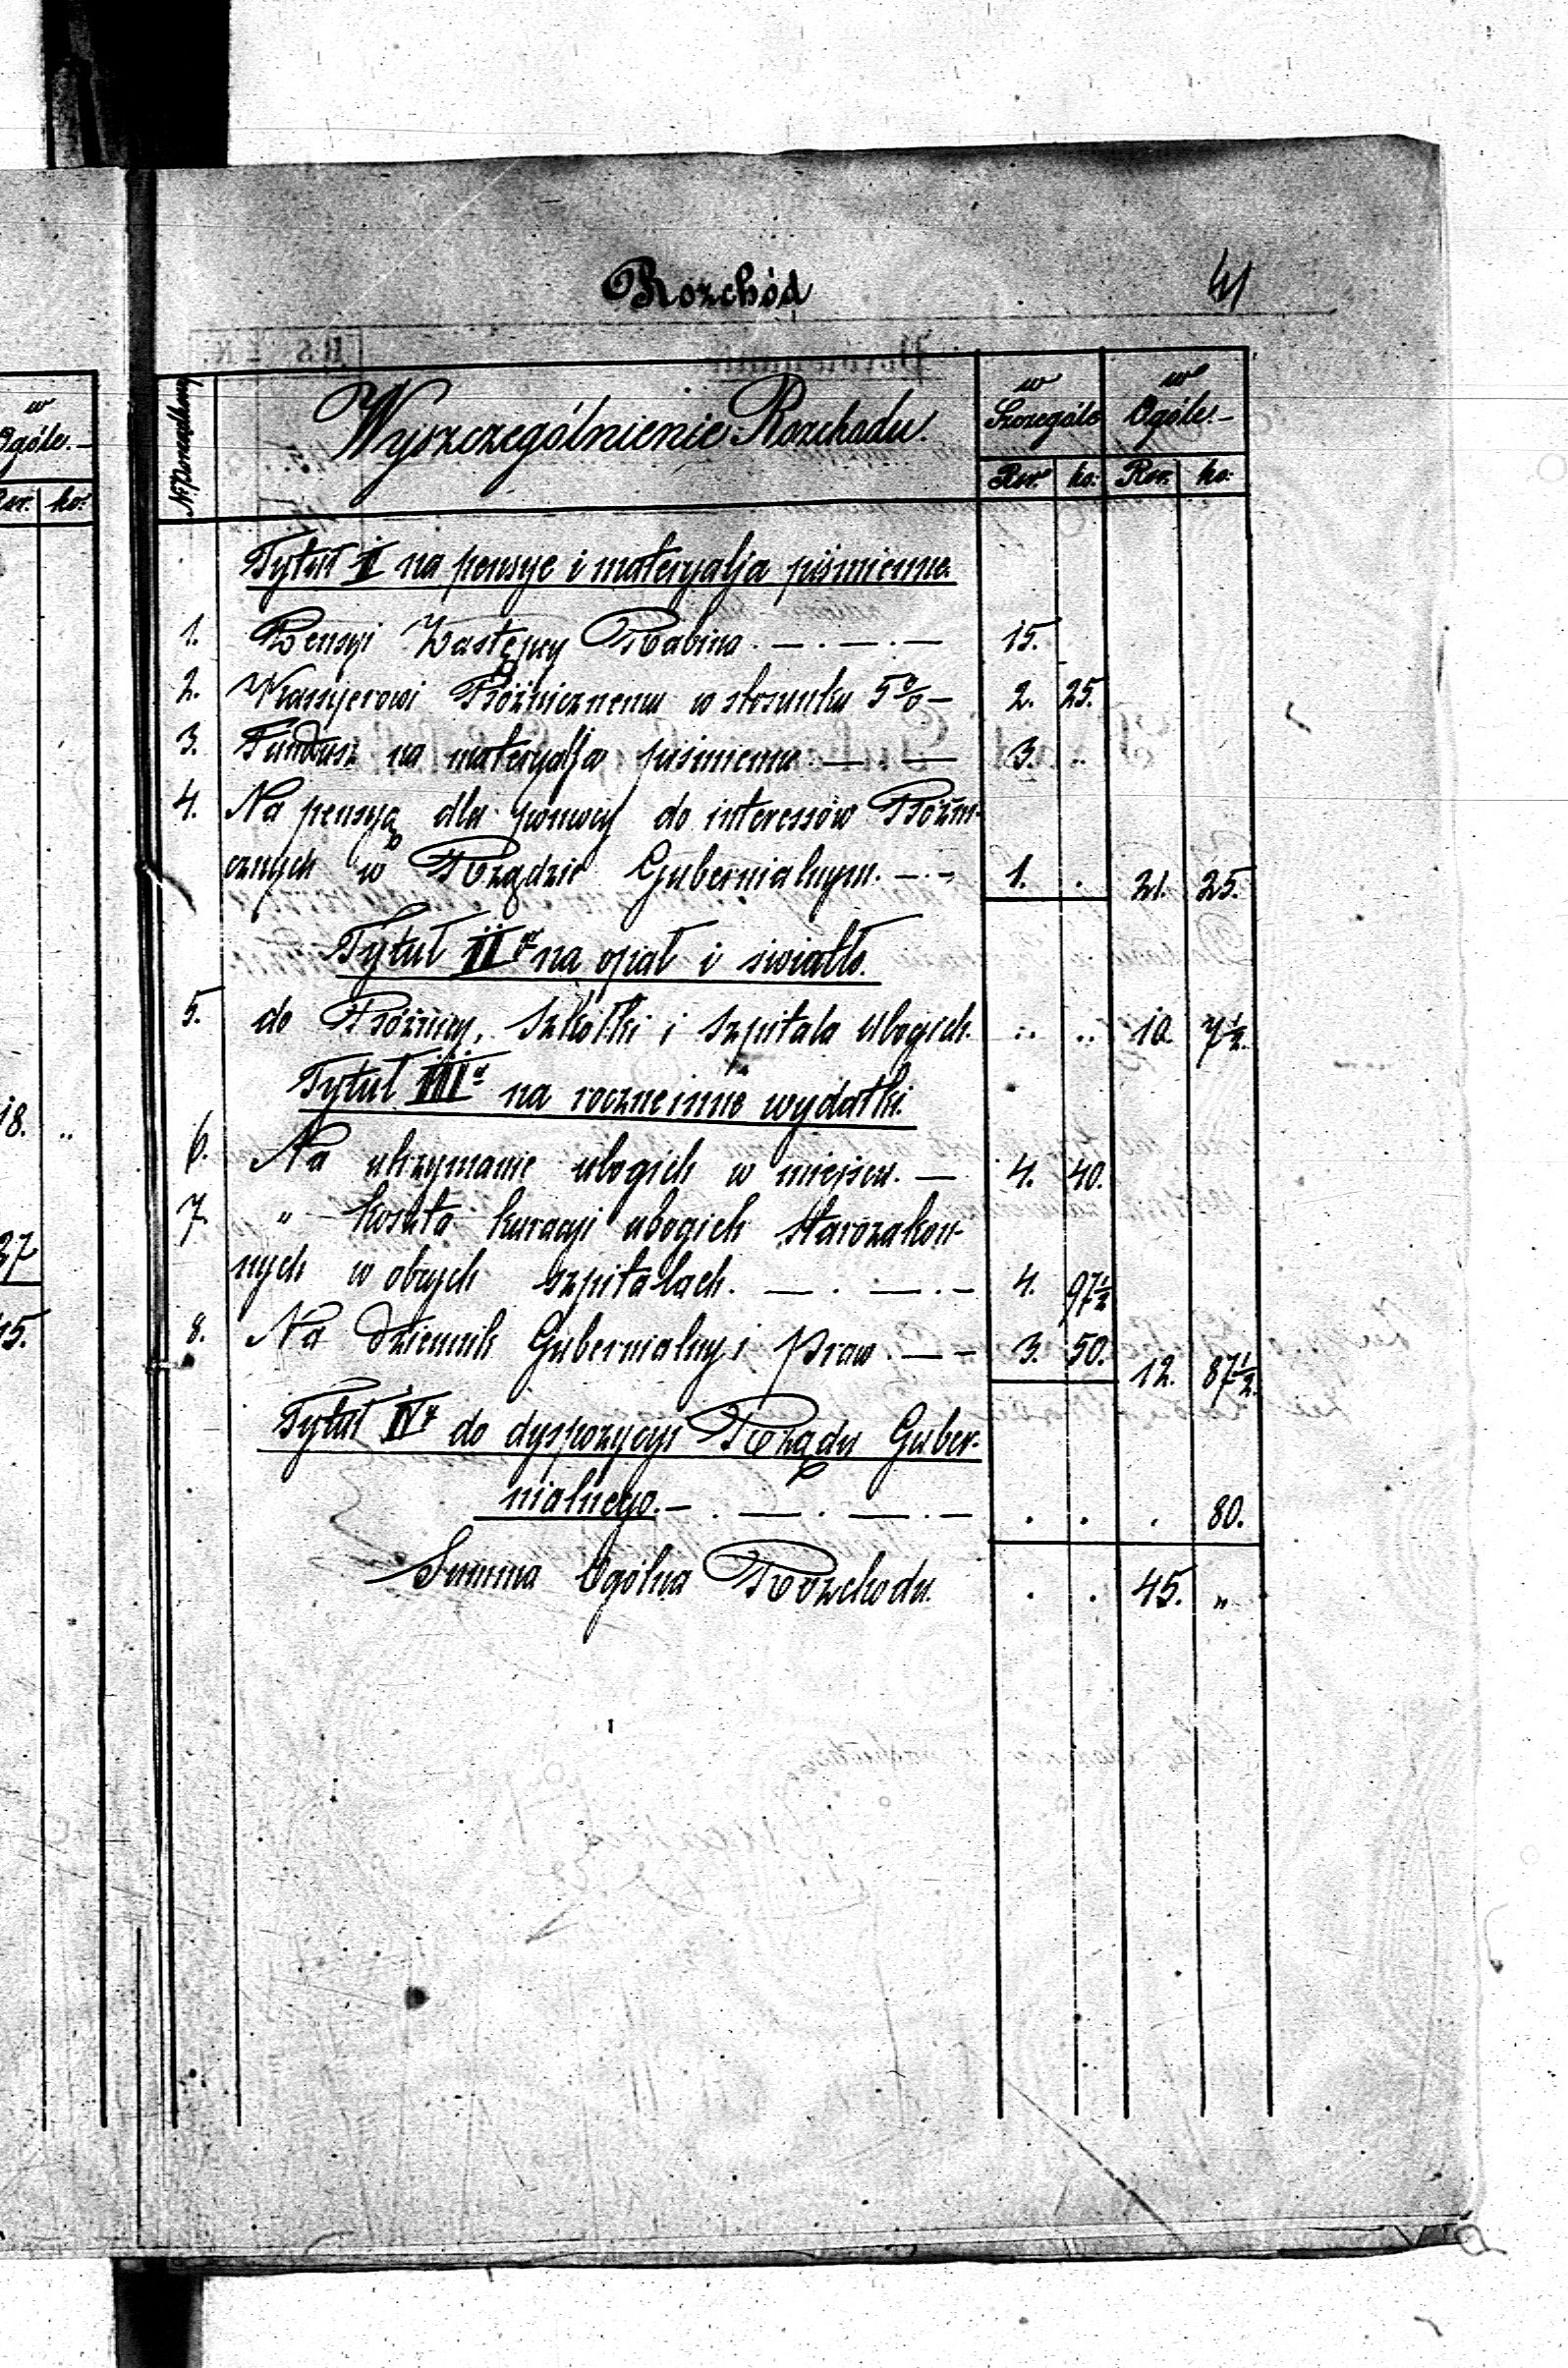 w
Ogóle.—
Rsr. ko:
18. „
37
15.
Rozchód
41
N: Porządkowy
Wyszczególnienie Rozchodu.
w Szczególe
w Ogóle.—
Rsr. ko: Rsr. ko:
Tytuł I na pensye i materyalja piśmienne.
1. Pensyi Zastępcy Rabina. — . — . — 15.
2. Kassyerowi Bóżnicznemu w stosunku 5% — 2. 25.
3. Fundusz na materyalja piśmienne — — 3. „
4. Na pensyą dla pomocy do interessów Bóżni-
cznych w Rządzie Gubernialnym. — . — 1. . 21. 25.
Tytuł II na opał i światło.
5. do Bóżnicy, Szkółki i Szpitala ubogich. „ „ 10 7½.
Tytuł III na roczne inne wydatki.
6. Na utrzymanie ubogich w miejscu. — 4. 40.
7. „ koszta kuracyi ubogich starozakon-
nych w obcych szpitalach. — . — . — 4. 97½
8. Na Dziennik Gubernialny i Praw. — — 3. 50. 12. 87½.
Tytuł IV do dyspozycyi Rządu Guber-
nialnego. — . — . — . — . . . 80.
Summa Ogólna Rozchodu. . . 45. „